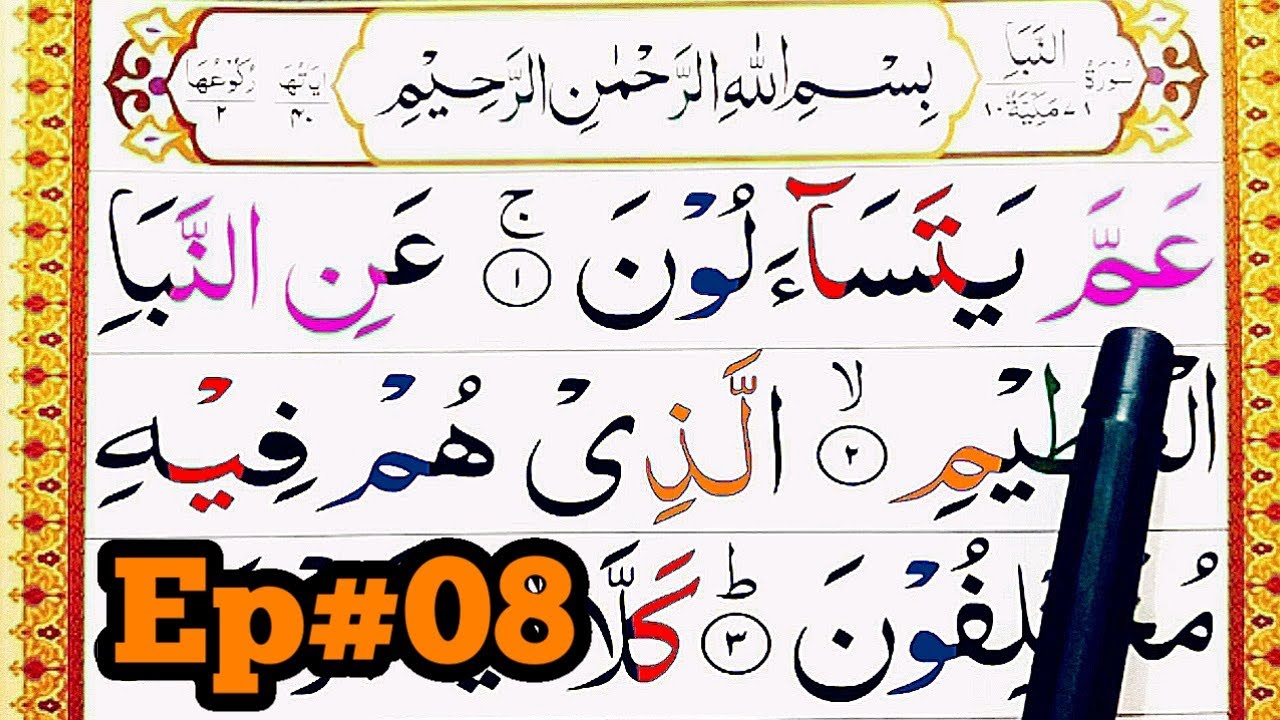 سُوۡرَةُ النَّبَاِ
٧١ مَكِّيَّةٌ ١٠
بِسۡمِ اللّٰهِ الرَّحۡمٰنِ الرَّحِيۡمِ
اٰيَاتُهَا ٤٠
رُكُوۡعُهَا ٢
عَمَّ يَتَسَآءَلُوۡنَ ۚ ١ عَنِ النَّبَاِ
الۡعَظِيۡمِ ۙ ٢ الَّذِىۡ هُمۡ فِيۡهِ
مُخۡتَلِفُوۡنَ ؕ ٣ كَلَّا
Ep#08